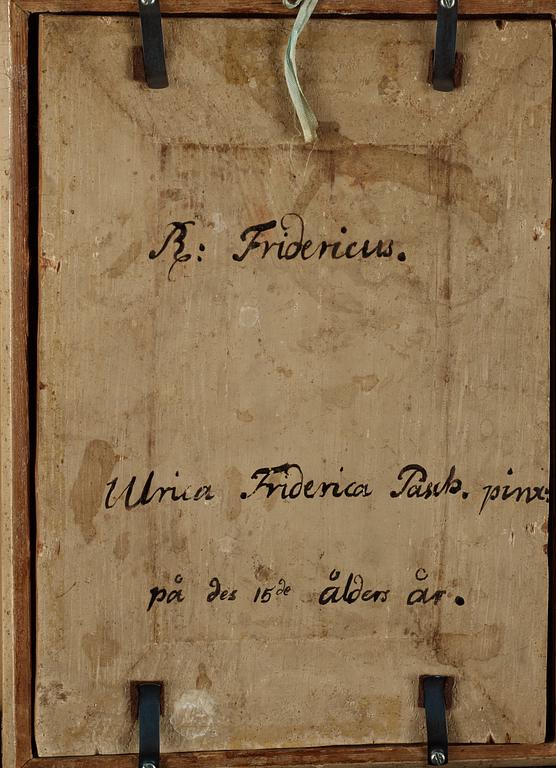 R: Fridericus.
Ulrica Friderica Pasch. pinx:
på des 15de ålders år.